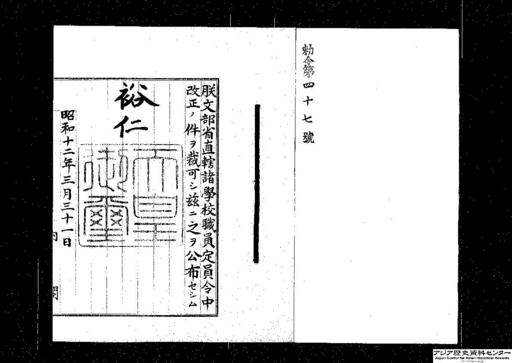 勅令第四十七號
朕文部省直轄諸學校職員定員令中
改正ノ件ヲ裁可シ茲ニ之ヲ公布セシム
裕仁
天皇御璽
昭和十二年三月三十一日
内
閣
アジア歴史資料センター
Japan Center for Asian Historical Records